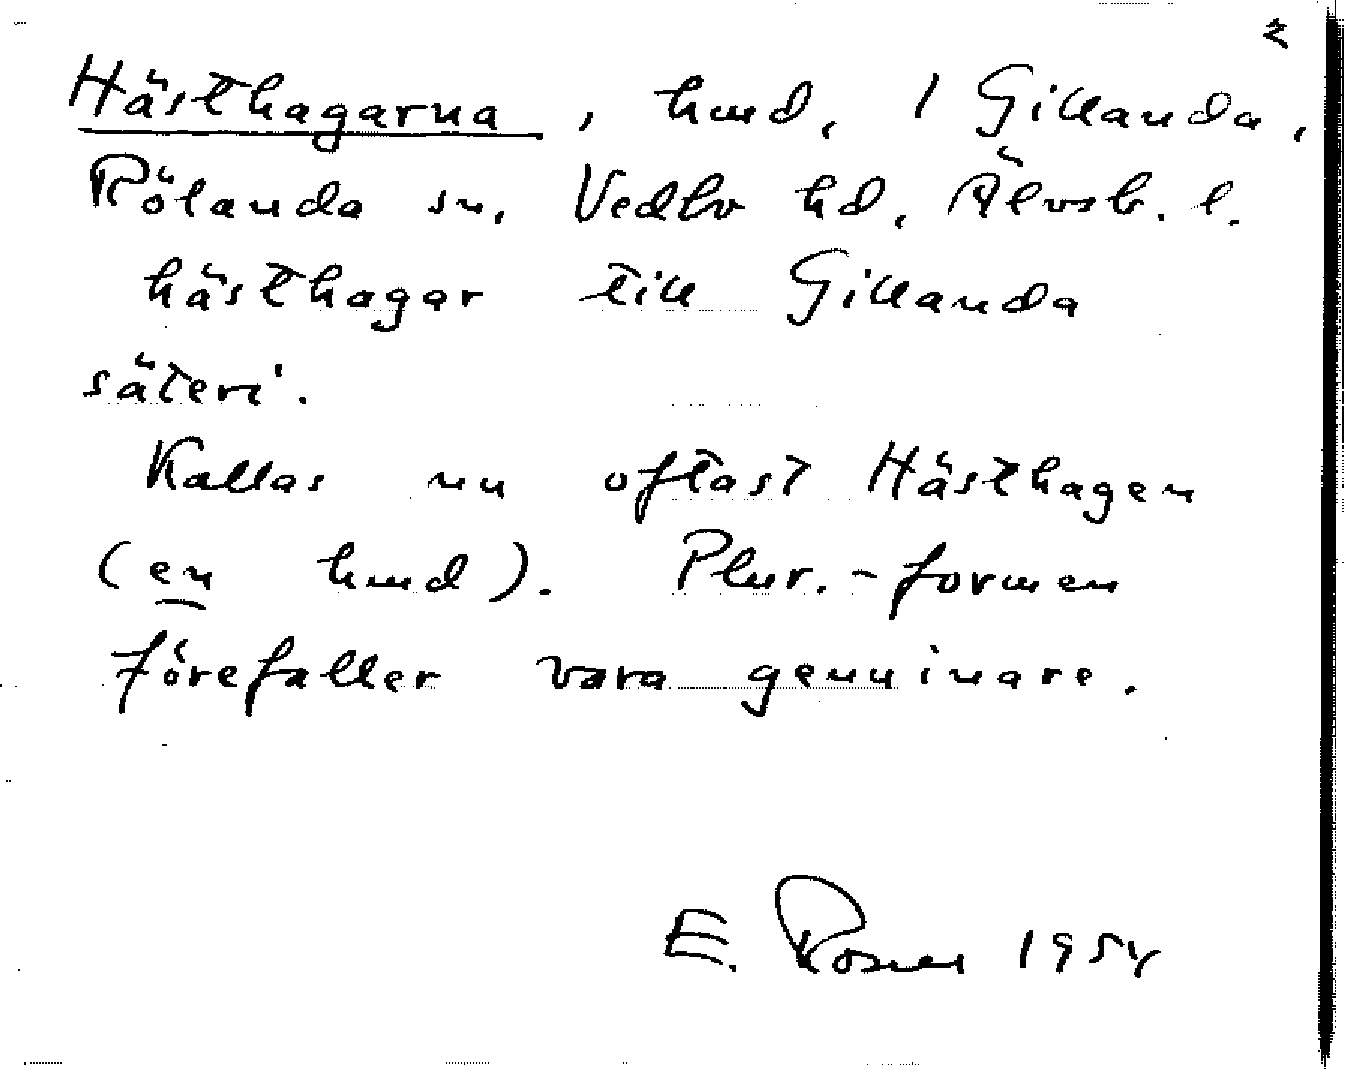 2
Hästhagarna, hmd, 1 Gillanda,
Rölanda sn, Vedbo hd, Älvsb. l.
hästhagar till Gillanda
säteri.
Kallas nu oftast Hästhagen
(en hmd). Plur.-formen
förefaller vara genuinare.
E. Rosell 1954